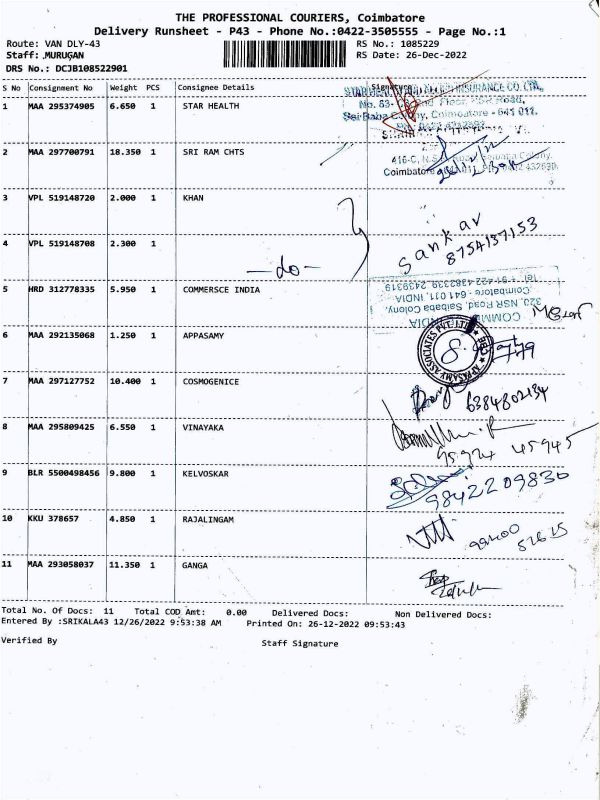 THE PROFESSIONAL COURIERS, Coimbatore
Delivery Runsheet - P43 - Phone No.:0422-3505555 - Page No.:1
Route: VAN DLY-43 RS No.: 1085229
Staff: .MURUGAN RS Date: 26-Dec-2022
DRS No.: DCJB108522901
S No Consignment No Weight PCS Consignee Details Signature
1 MAA 295374905 6.650 1 STAR HEALTH
INSURANCE CO. LTD.,
No. 63- Floor, NSR Road,
Sai Baba Colony, Coimbatore - 641 011.
2 MAA 297700791 18.350 1 SRI RAM CHTS
416-C, N.S.R. Road, Saibaba Colony,
Coimbatore
3 VPL 519148720 2.000 1 KHAN
Sankar
8754137153
4 VPL 519148708 2.300 1
—do—
5 HRD 312778335 5.950 1 COMMERSCE INDIA
320, NSR Road, Saibaba Colony,
Coimbatore - 641 011. INDIA
Tel : + 91-422-4382339, 2439319
6 MAA 292135068 1.250 1 APPASAMY
APPASAMY ASSOCIATES PVT. LTD.
7 MAA 297127752 10.400 1 COSMOGENICE
6384802134
8 MAA 295809425 6.550 1 VINAYAKA
95924 45945
9 BLR 5500498456 9.800 1 KELVOSKAR
9842209830
10 KKU 378657 4.850 1 RAJALINGAM
11 MAA 293058037 11.350 1 GANGA
Total No. Of Docs: 11 Total COD Amt: 0.00 Delivered Docs: Non Delivered Docs:
Entered By :SRIKALA43 12/26/2022 9:53:38 AM Printed On: 26-12-2022 09:53:43
Verified By Staff Signature